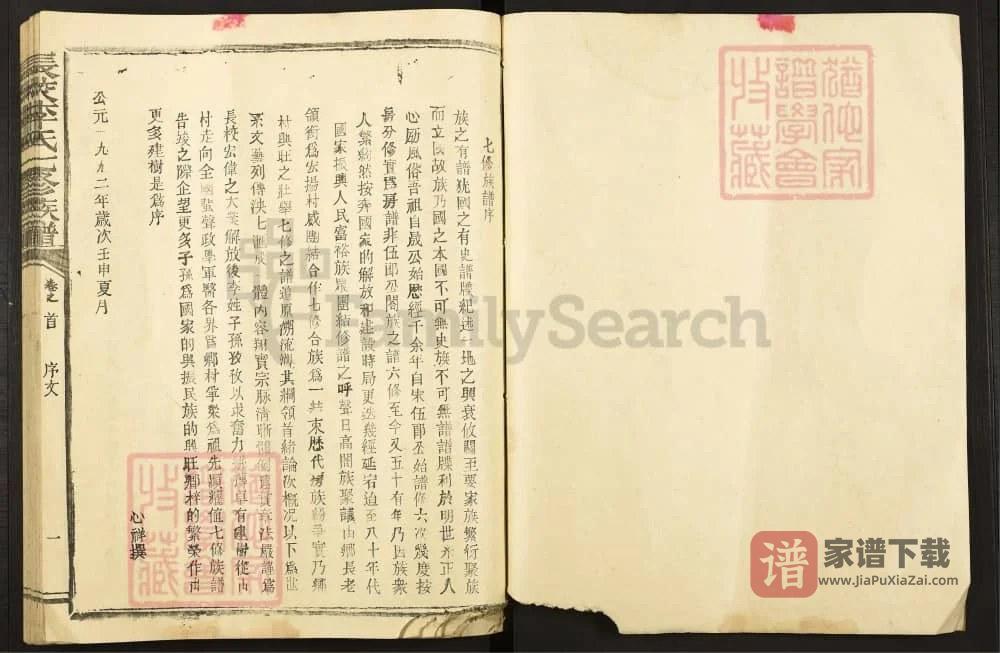 七修族譜序
族之有譜犹國之有史譜牒紀述一地之興衰攸關至要家族繁衍聚族
而立國故族乃國之本國不可無史族不可無譜譜牒利於明世系正人
心励風俗昔祖自晟公始歷經千余年自宋伍郎公始譜修六次幾度按
房分修實爲房譜非伍郎公閤族之譜六修至今又五十有年乃因族衆
人繁約然按奔國家的解放和建設時局更迭幾經延宕迫至八十年代
國家振興人民富裕族衆團結修譜之呼聲日高閤族聚議由鄉長老
領銜爲宏揚村威團結合作七修合族爲一共束歷代房族紛爭實乃鄉
村興旺之壯舉七修之譜道原溯流溯其綱領首緒論次概况以下爲世
系文藝列傳泱七 體内容翔實宗脉清晰 章法嚴謹爲
長校宏偉之大業解放後李姓子孫孜孜以求奮力 卓有建樹從山
村走向全國蜚聲政學軍醫各界爲鄉村爭榮爲祖先 值七修族譜
告竣之際企望更多子孫爲國家的興振民族的興旺鄉梓的繁榮作出
更多建樹是爲序
公元一九九二年歲次壬申夏月
心祥撰
長校李氏七修族譜
卷之首
序文
一
猶他家
譜學會
收藏
FamilySearch
譜
家谱下载
www.JiaPuXiaZai.com